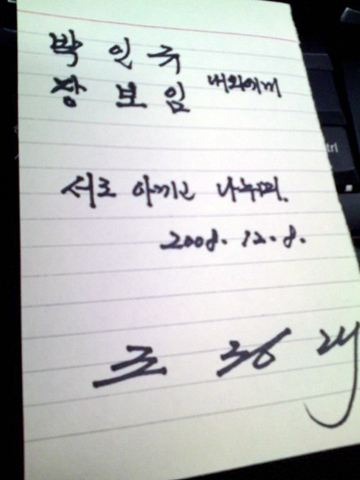 박 인 국
장 보 임 내외에게
서로 아끼고 나누며.
2008. 12. 8.
조
trl